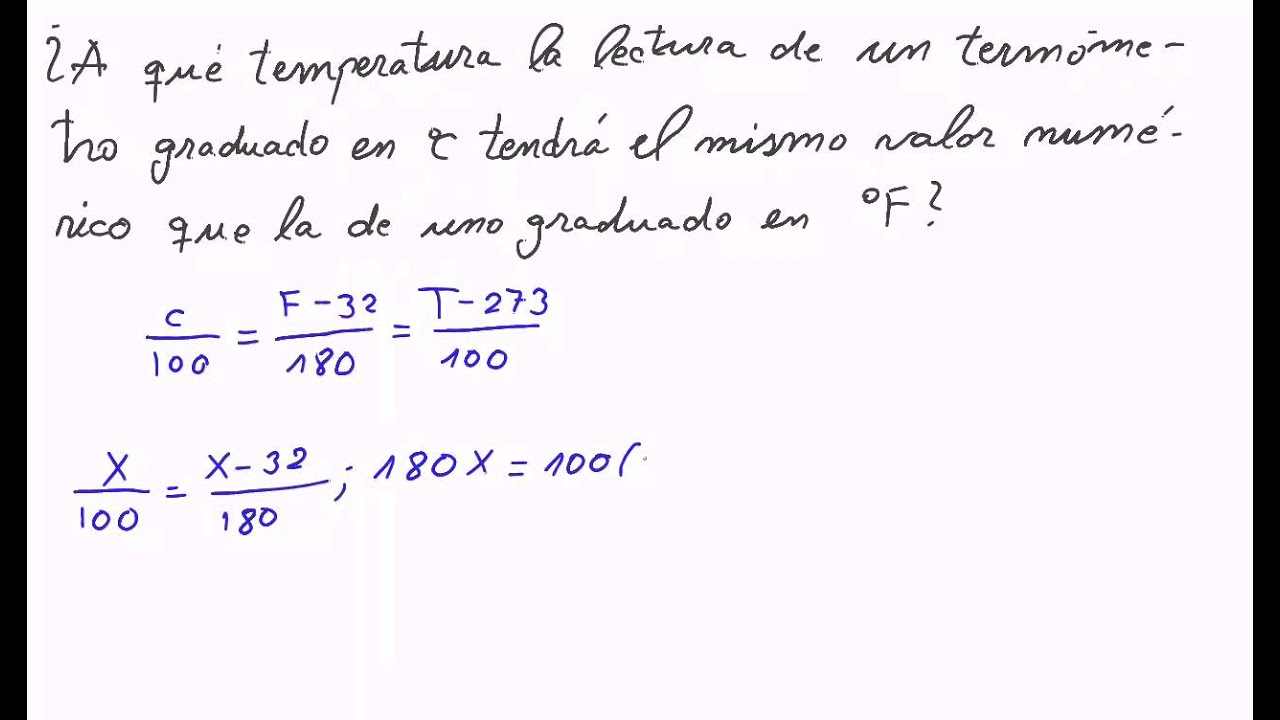 ¿A qué temperatura la lectura de un termóme-
tro graduado en ℃ tendrá el mismo valor numé-
rico que la de uno graduado en ºF?
c/100 = F-32/180 = T-273/100
X/100 = X-32/180 ; 180X = 100(